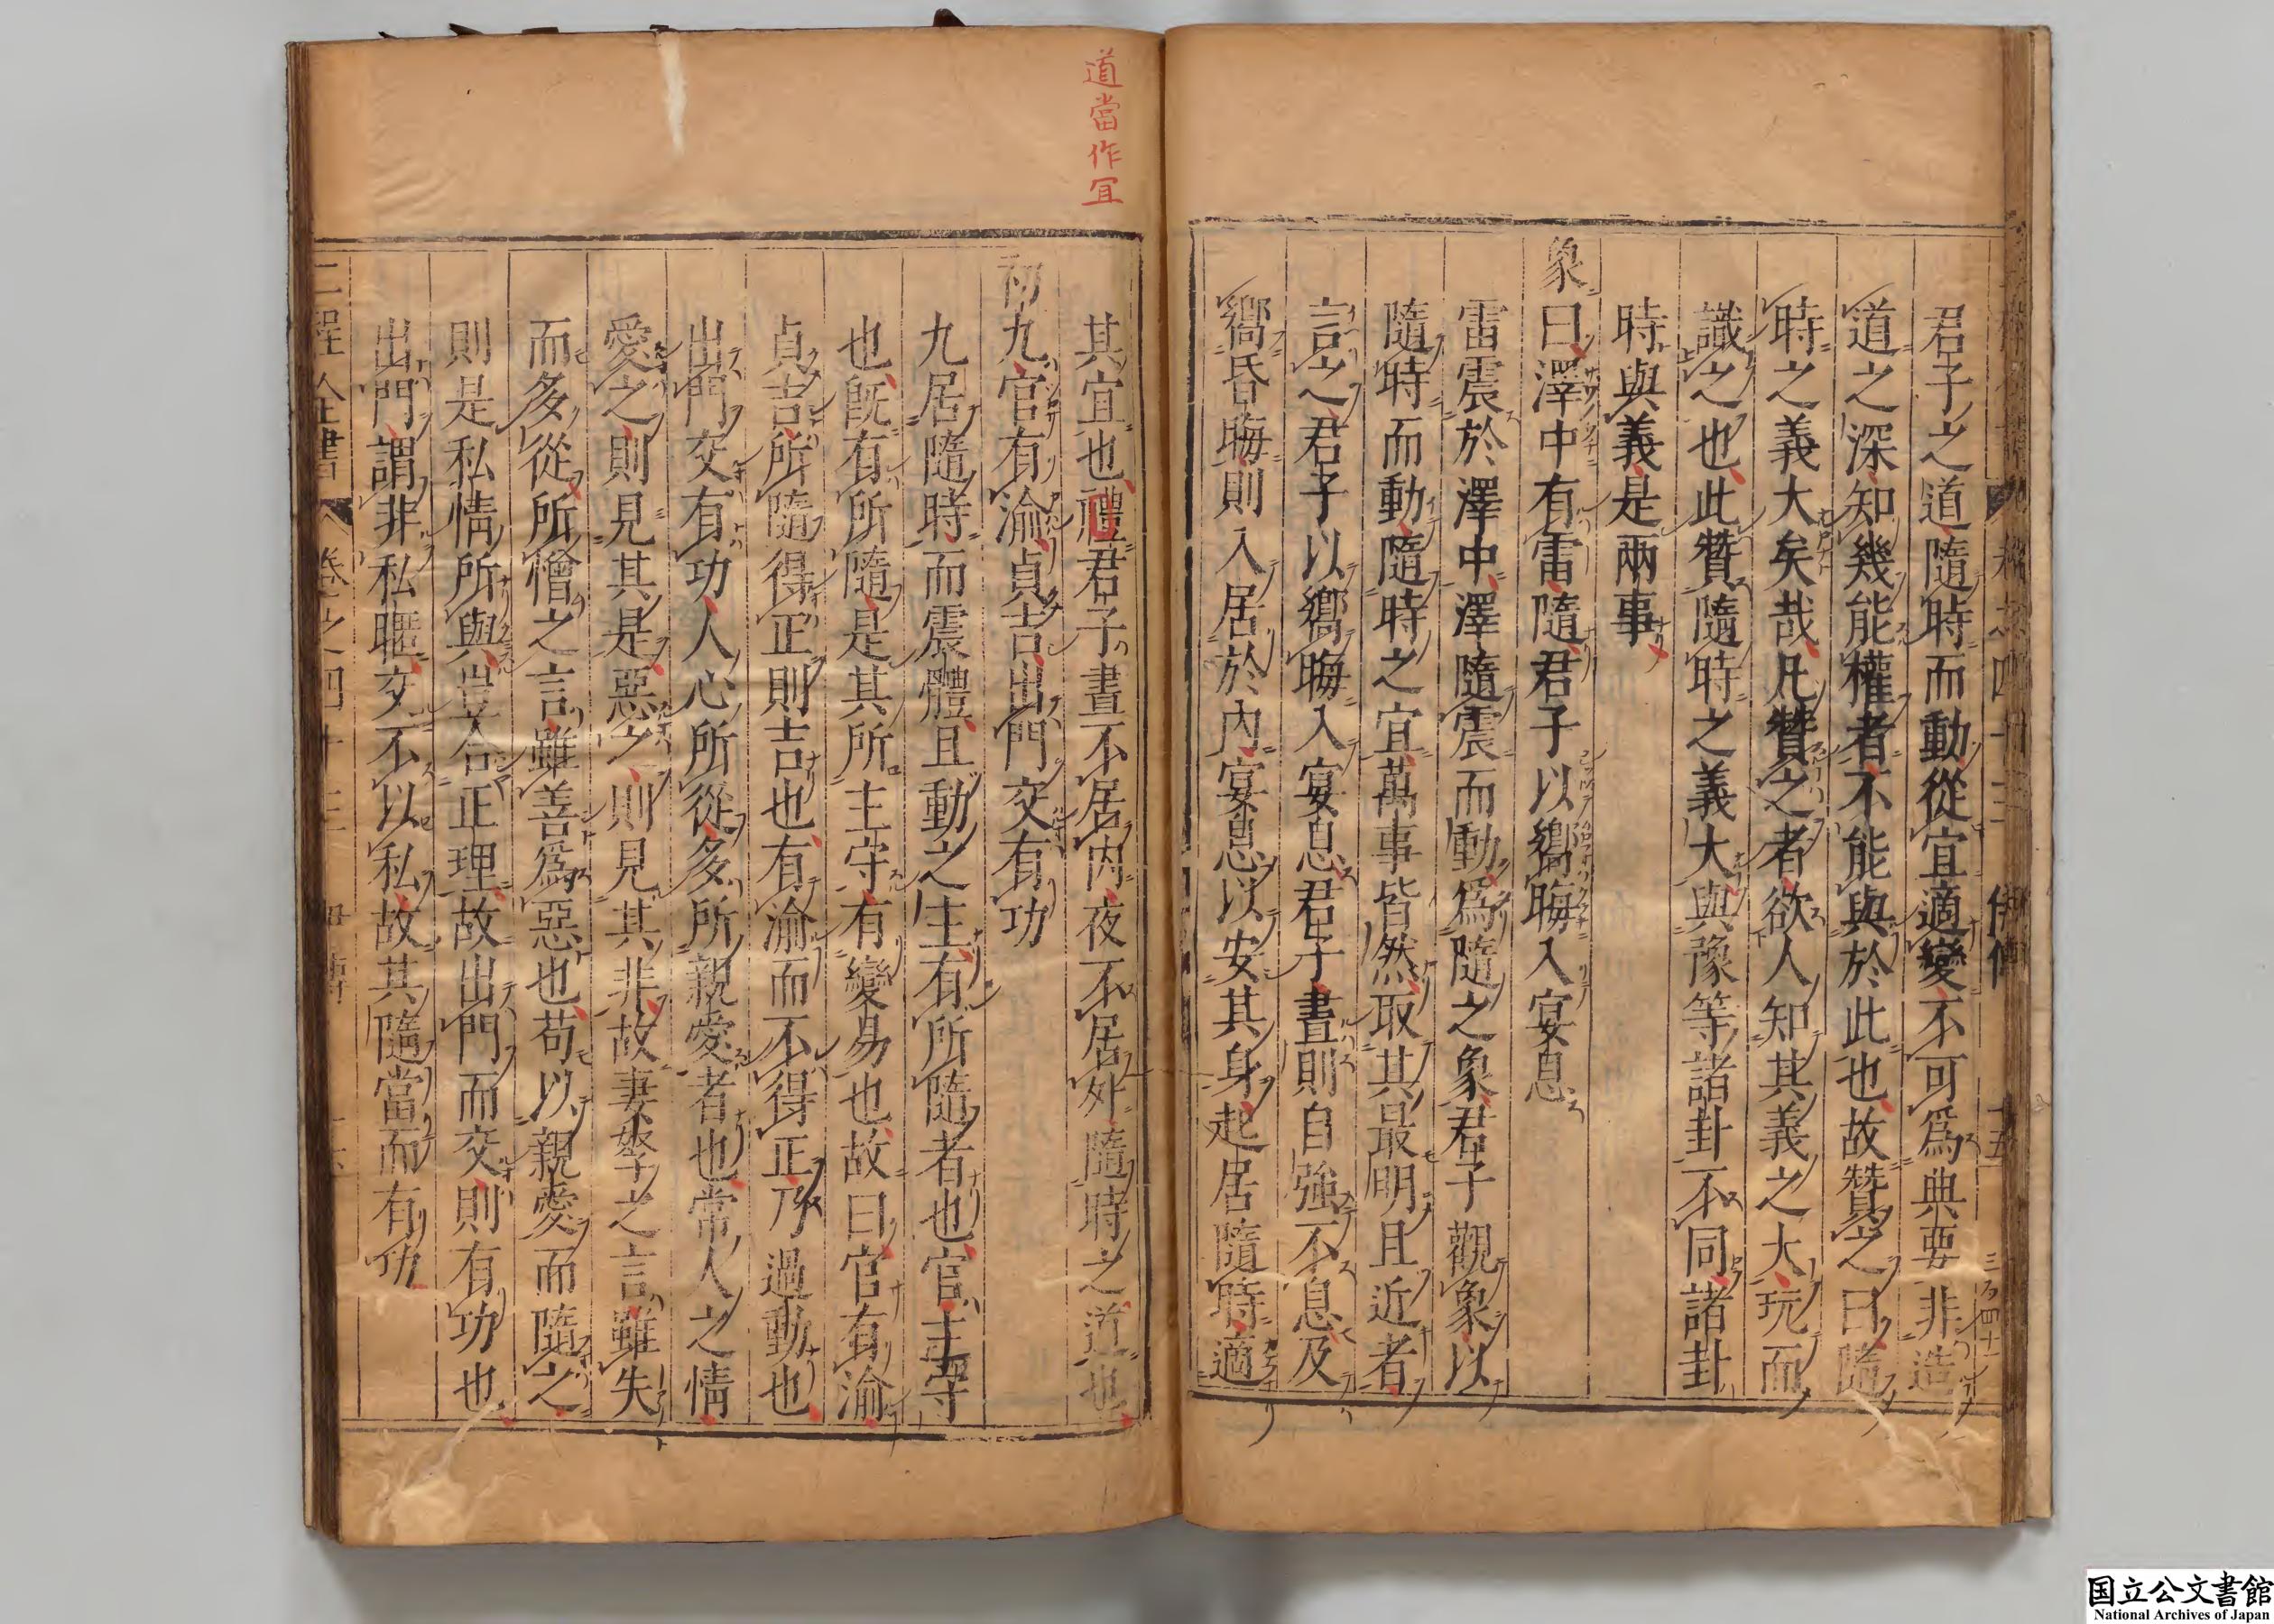 君子之道隨時而動從宜適變不可爲典要非造
道之深知幾能權者不能與於此也故贊之曰隨
時之義大矣哉凡贊之者欲人知其義之大玩而
識之也此贊隨時之義大與豫等諸卦不同諸卦
時與義是兩事
象曰澤中有雷隨君子以嚮晦入宴息
雷震於澤中澤隨震而動爲隨之象君子觀象以
隨時而動隨時之宜萬事皆然取其最明且近者
言之君子以嚮晦入宴息君子晝則自強不息及
嚮昏晦則入居於內宴息以安其身起居隨時適
道當作冝
其宜也禮君子晝不居內夜不居外隨時之道也
初九官有渝貞吉出門交有功
九居隨時而震體且動之主有所隨者也官主守
也旣有所隨是其所主守有變易也故曰官有渝
貞吉所隨得正則吉也有渝而不得正乃過動也
出門交有功人心所從多所親愛者也常人之情
愛之則見其是惡之則見其非故妻孥之言雖失
而多從所憎之言雖善爲惡也苟以親愛而隨之
則是私情所與豈合正理故出門而交則有功也
出門謂非私暱交不以私故其隨當而有功
二程全書 卷之四十三
国立公文書館
National Archives of Japan